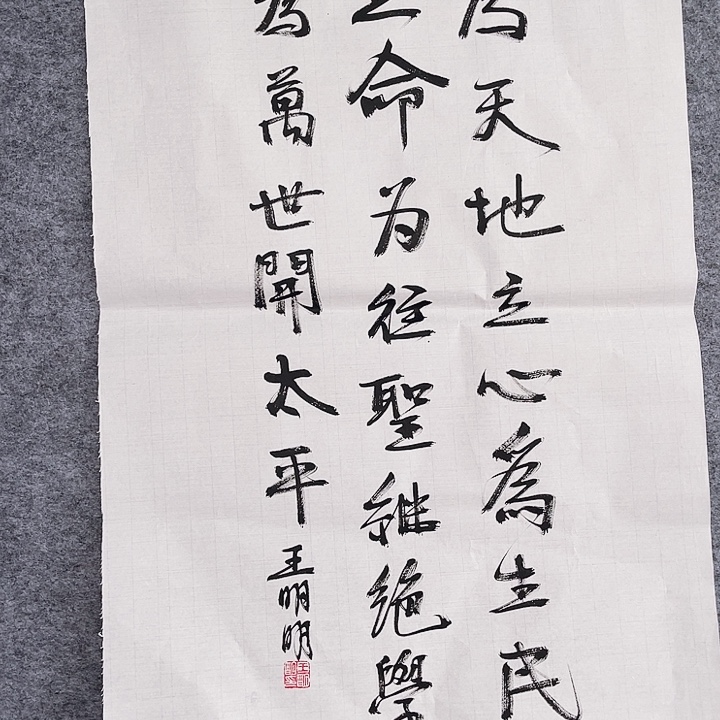 为天地立心為生民
立命为往聖継绝學
為萬世開太平
王明明